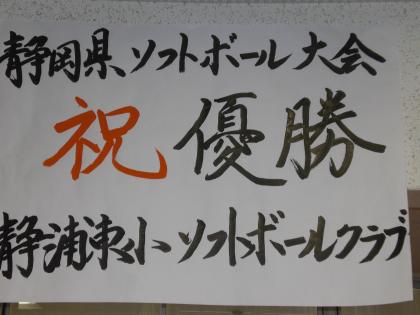 静岡県ソフトボール大会
祝優勝
静浦東小ソフトボールクラブ